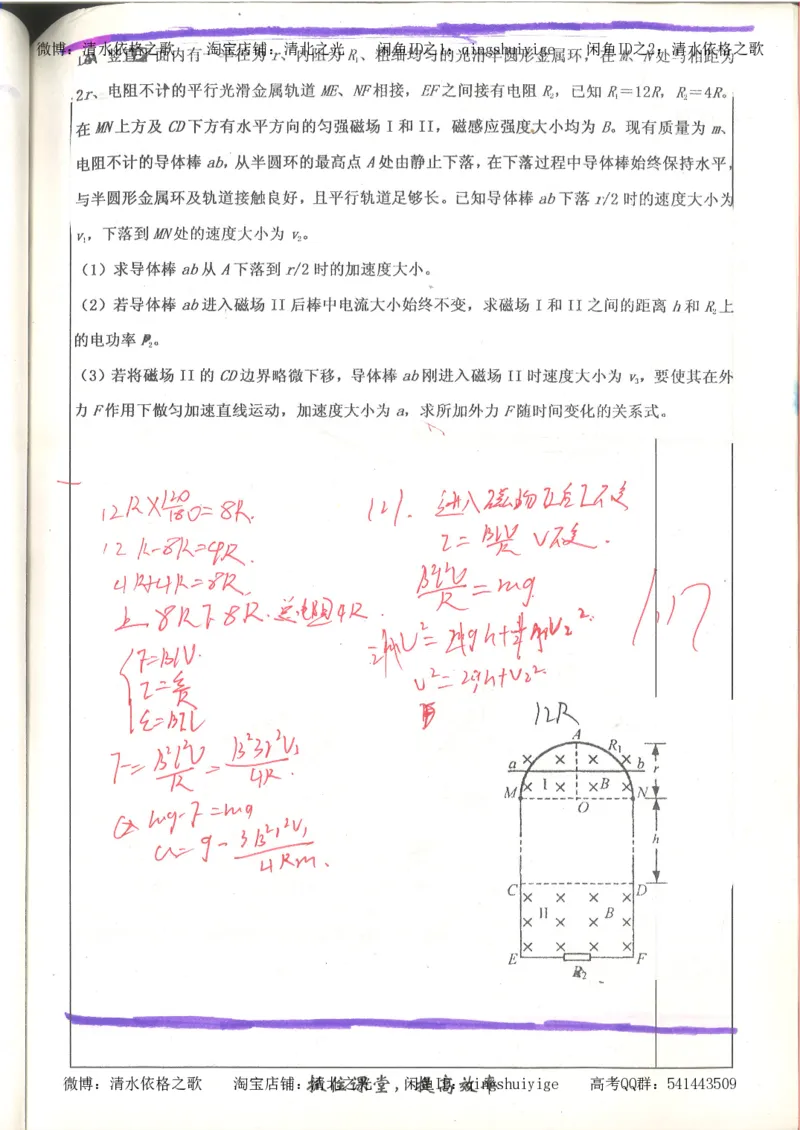 微博：清水依格之歌 淘宝店铺：清北之光 闲鱼ID之1：qingshuiyige 闲鱼ID之2：清水依格之歌
竖直平面内有一半径为r、内阻为R₁、粗细均匀的光滑半圆形金属环，在M、N处与相距为
2r、电阻不计的平行光滑金属轨道ME、NF相接，EF之间接有电阻R₂，已知R₁＝12R，R₂＝4R。
在MN上方及CD下方有水平方向的匀强磁场I和II，磁感应强度大小均为B。现有质量为m、
电阻不计的导体棒ab，从半圆环的最高点A处由静止下落，在下落过程中导体棒始终保持水平，
与半圆形金属环及轨道接触良好，且平行轨道足够长。已知导体棒ab下落r/2时的速度大小为
v₁，下落到MN处的速度大小为v₂。
（1）求导体棒ab从A下落到r/2时的加速度大小。
（2）若导体棒ab进入磁场II后棒中电流大小始终不变，求磁场I和II之间的距离h和R₂上
的电功率P₂。
（3）若将磁场II的CD边界略微下移，导体棒ab刚进入磁场II时速度大小为v₃，要使其在外
力F作用下做匀加速直线运动，加速度大小为a，求所加外力F随时间变化的关系式。
12R×120/180=8R.
12R-8R=4R.
4R+4R=8R.
上8R下8R.总电阻4R.
F=BIV.
I=ε/R
ε=BIL
F=B²l²V/R=B²3r²V₁/4R.
mg-F=ma
a=g-3B²r²V₁/4Rm.
(2).进入磁场II后I不变
I=BLV/R V不变.
B²l²V/R=mg
V²=2gh+V₂².
12R
A
R₁
a
b
r
I
B
M
N
O
h
C
D
II
B
E
F
R₂
微博：清水依格之歌 淘宝店铺：清北之光 闲鱼ID：qingshuiyige 高考QQ群：541443509
抓住课堂，提高效率